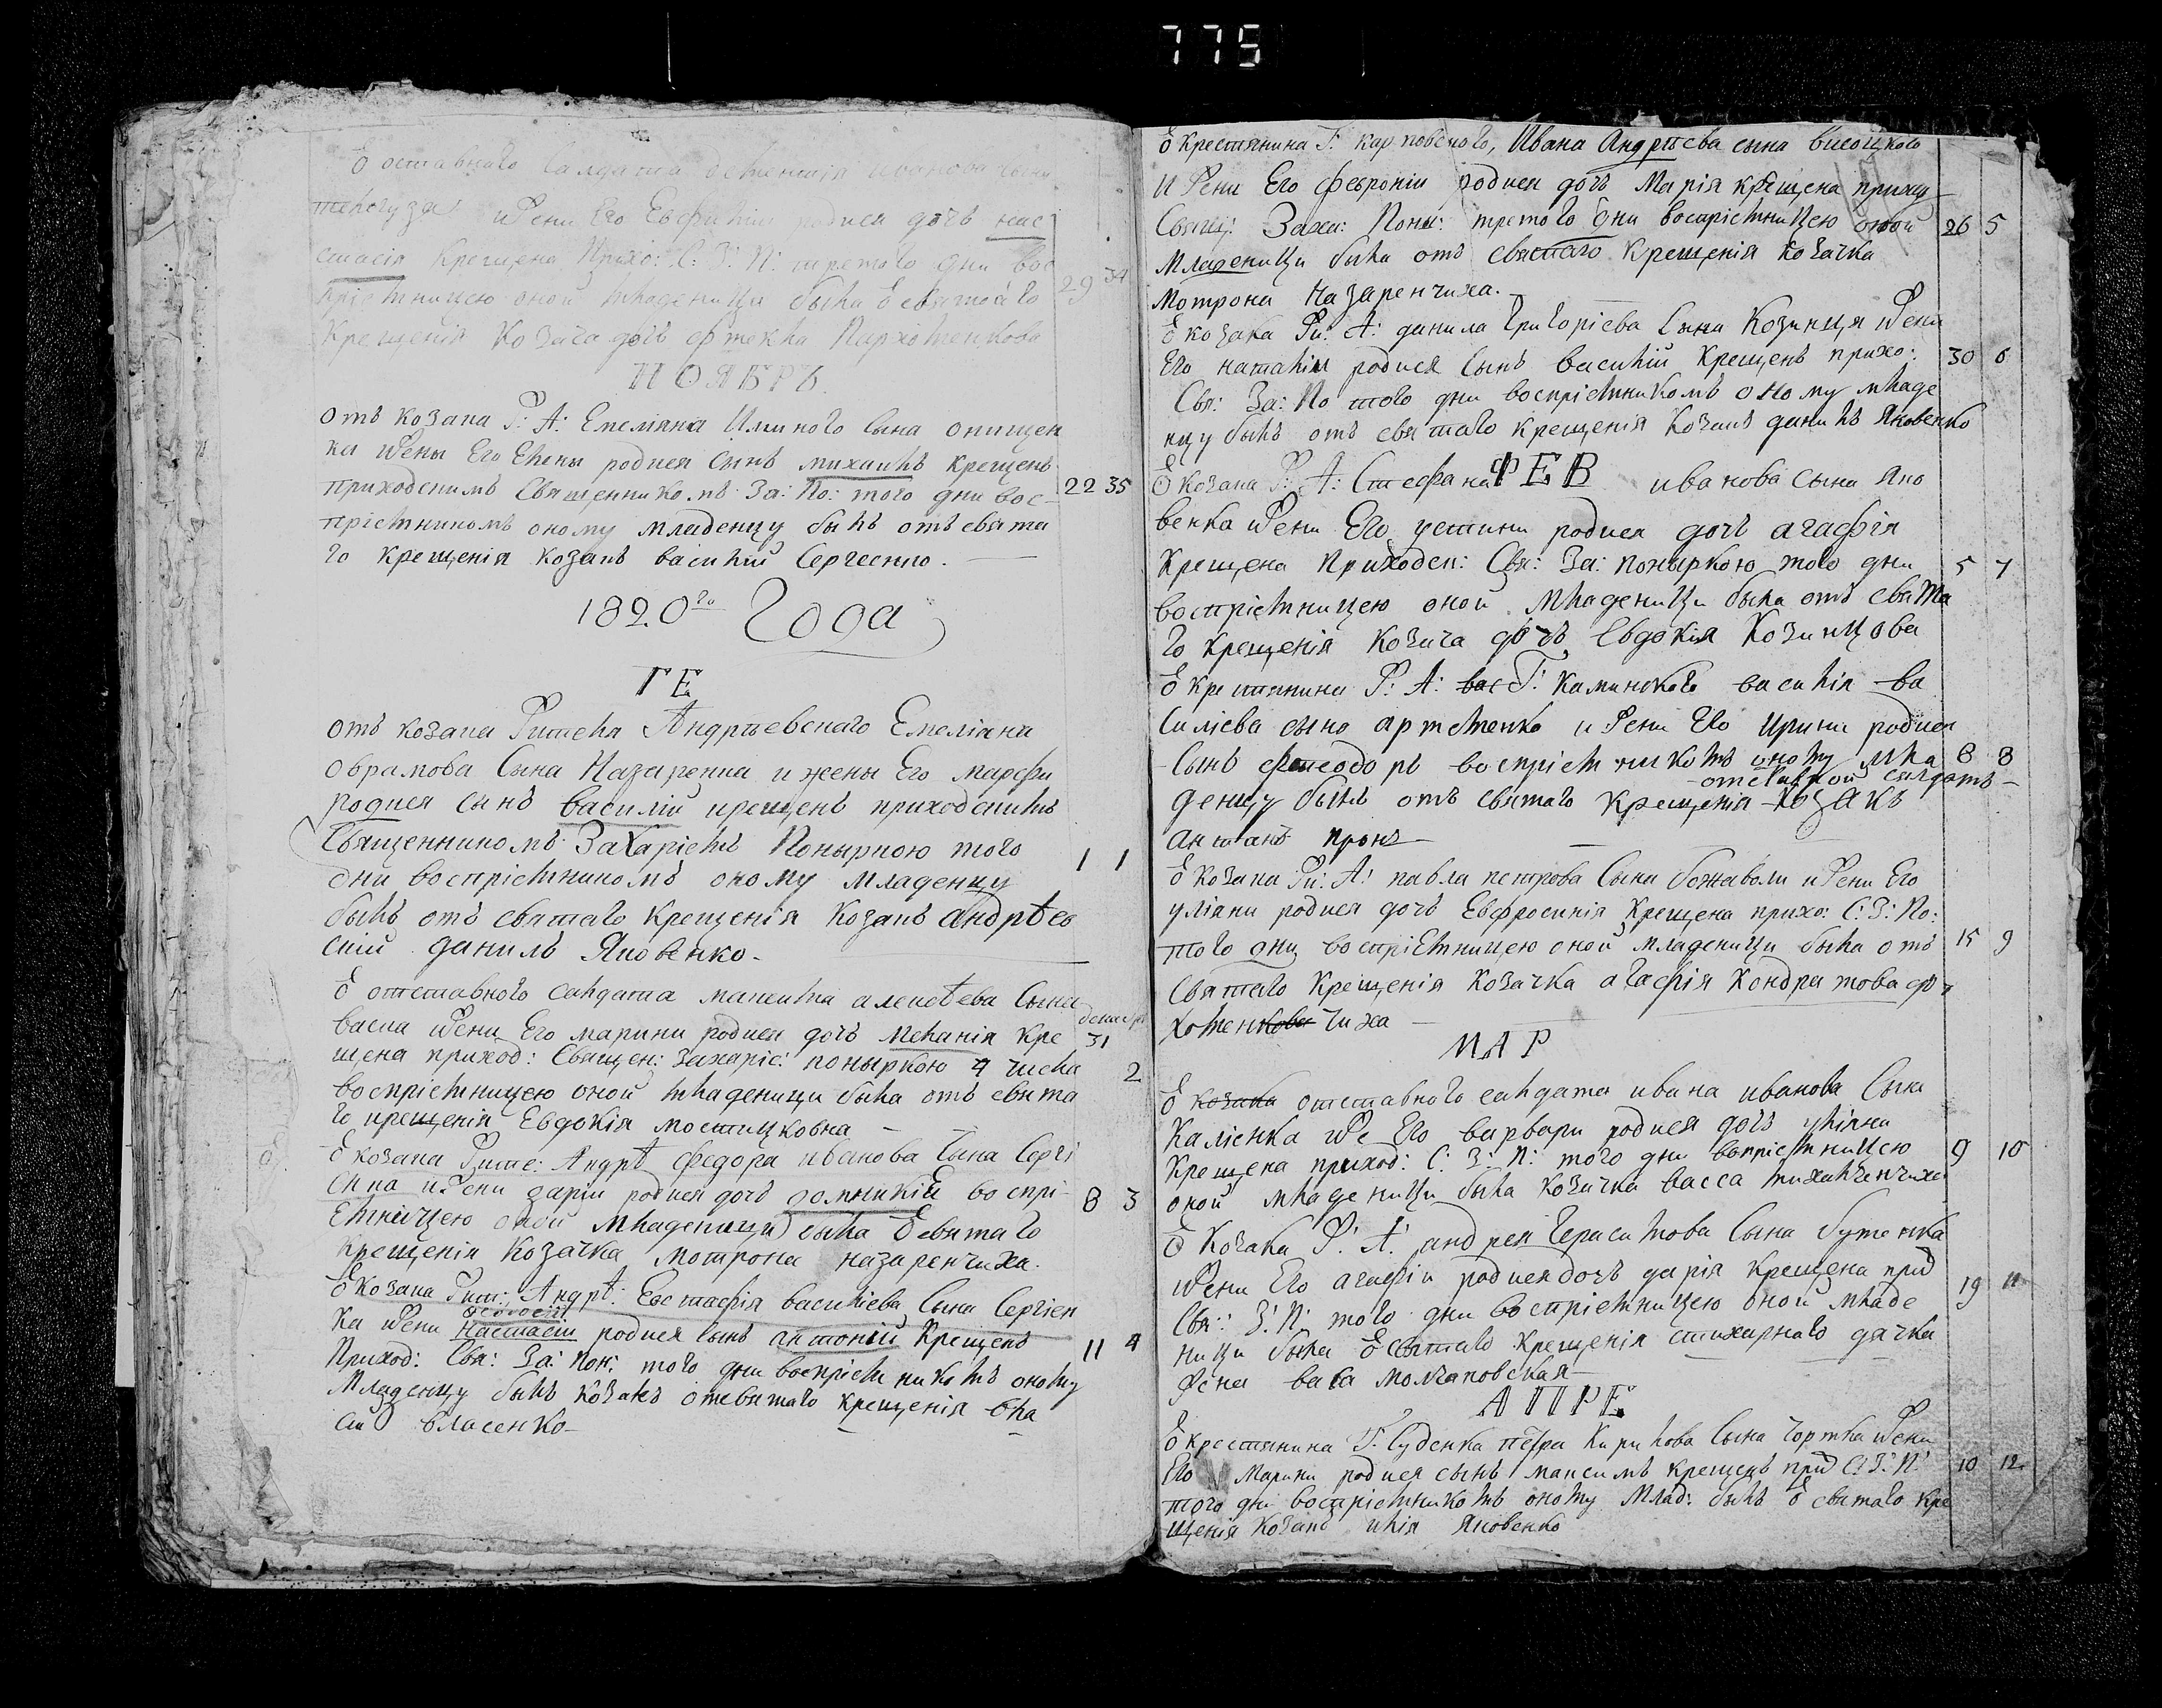 775
Ѿ оставнаго Салдата Иванова сына
и жени Его родися дочъ нас
стасія Крещена Прихо: С: З: П: третого дни вос
пріемницею оной младеници была Ѿ святаго
29 34
Крещенія Козача дочъ Пархоменкова
НОЯБРЪ
отъ козака Р: А: Емеляна сына онищен
ка жены Его Елены родися сынъ михаилъ крещенъ
приходскимъ Священникомъ За: По: того дни вос-
22 35
пріемникомъ оному младенцу былъ отъ свята
го крещенія козакъ василій Сергеенко.
1820го Года
ГЕ
отъ козака Андрѣевскаго Емеліана
Обрамова Сына Назаренка и жены Его марфи
родися сынъ василій крещенъ приходскимъ
Священникомъ Захаріемъ Поныркою того
1 1
дни воспріемникомъ оному младенцу
былъ отъ святаго крещенія Козакъ андрѣев
скій данилъ Яковенко.
Ѿ отставного салдата алексѣева Сына
васка жени Его марини родися дочъ меланія кре
декабр
31
щена приход: Священ: Захаріе: поныркою 4 числа
2
воспріемницею оной младеници была отъ свята
го крещенія Евдокія
Ѿ козака Андрѣ федора иванова Сына Сергі
енка и жени даріи родися дочъ воспрі
8 3
емницею оной младеници была Ѿ святаго
Крещенія Козачка мотрона назаренчиха.
Ѿ козака Рим: Андрѣ: Евстафія василіева Сына Сергіен
ка жени Настасіи родися сынъ антоній Крещенъ
11 4
Приход: Свя: За: Пон: того дни воспріемникомъ оному
Младенцу былъ козакъ отсвятаго крещенія вла
сій власенко
Ѿ Крестянина Г: карповского, Ивана Андрѣева сына висоцкого
и жени Его Февроніи родися дочъ Марія крещена прихд
Свящ: Заха: Поны: третого дни воспріемницею оной
26 5
младеници была отъ святаго крещенія козачка
мотрона Назаренчиха.
Ѿ козака Ри: А: данила Григоріева Сына Козинця жени
Его наталіи родися Сынъ василій Крещенъ прихо:
30 6
Свя: За: По того дни воспріемникомъ оному младе
нцу былъ отъ святаго крещенія Козакъ данилъ Яковенко
ФЕВ
Ѿ козака Р: А: Стефана иванова сына Яко
венка жени Его устини родися дочъ агафія
Крещена Приходск: Свя: За: Поныркою того дни
5 7
воспріемницею оной младеници была отъ свята
го крещенія козача дочъ Евдокія Козинцова
Ѿ крестянина Р: А: вас Г: Каминского василія ва
силіева сына артеменко и жени Его ирини родися
Сынъ феодоръ воспріемникомъ оному мла
8 8
отставной салдатъ
денцу былъ отъ святаго крещенія козакъ
антанъ пронъ
Ѿ козака Ри: А: павла петрова Сына божаволи и жени Его
уліяни родися дочъ Евфросинія Крещена прихо: С: З: По:
того дни воспріемницею оной младеници была отъ
15 9
Святаго крещенія козачка агафія Кондратова
хоменкова чиха
МАР
Ѿ козака отставного салдата ивана иванова Сына
Каліенка же Его варвари родися дочъ уліяна
Крещена приход: С: З: П: того дни воспріемницею
9 10
оной младеници была козачка васса михайленчиха
Ѿ Козака Р: А: андрея Герасимова Сына бутенка
жени Его агафіи родися дочъ дарія крещена прид
19 11
Свя: З: П: того дни воспріемницею оной младе
ници была Ѿ святаго крещенія стихарнаго дячка
жена васа молчановская
АПРЕ
Ѿ крестянина Г. Суденка петра Кирилова Сына чортка жени
Его Марини родися сынъ максимъ крещенъ прид С: З: П:
10 12
того дни воспріемникомъ оному Млад: былъ Ѿ святаго кре
щенія козакъ илія Яковенко